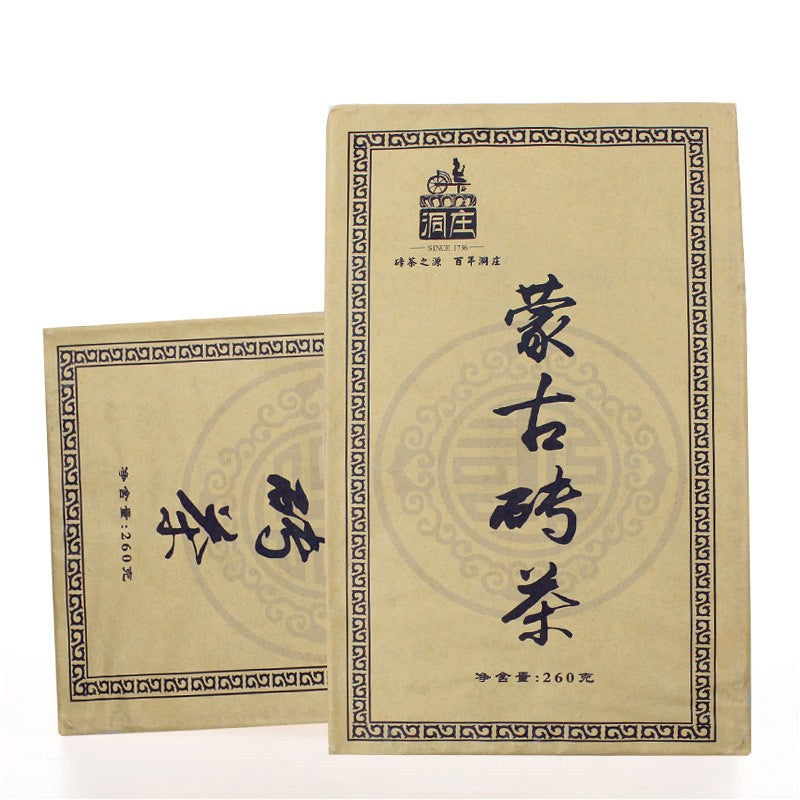 洞庄
SINCE 1736
砖茶之源 百年洞庄
蒙古砖茶
净含量:260克
砖茶
净含量:260克